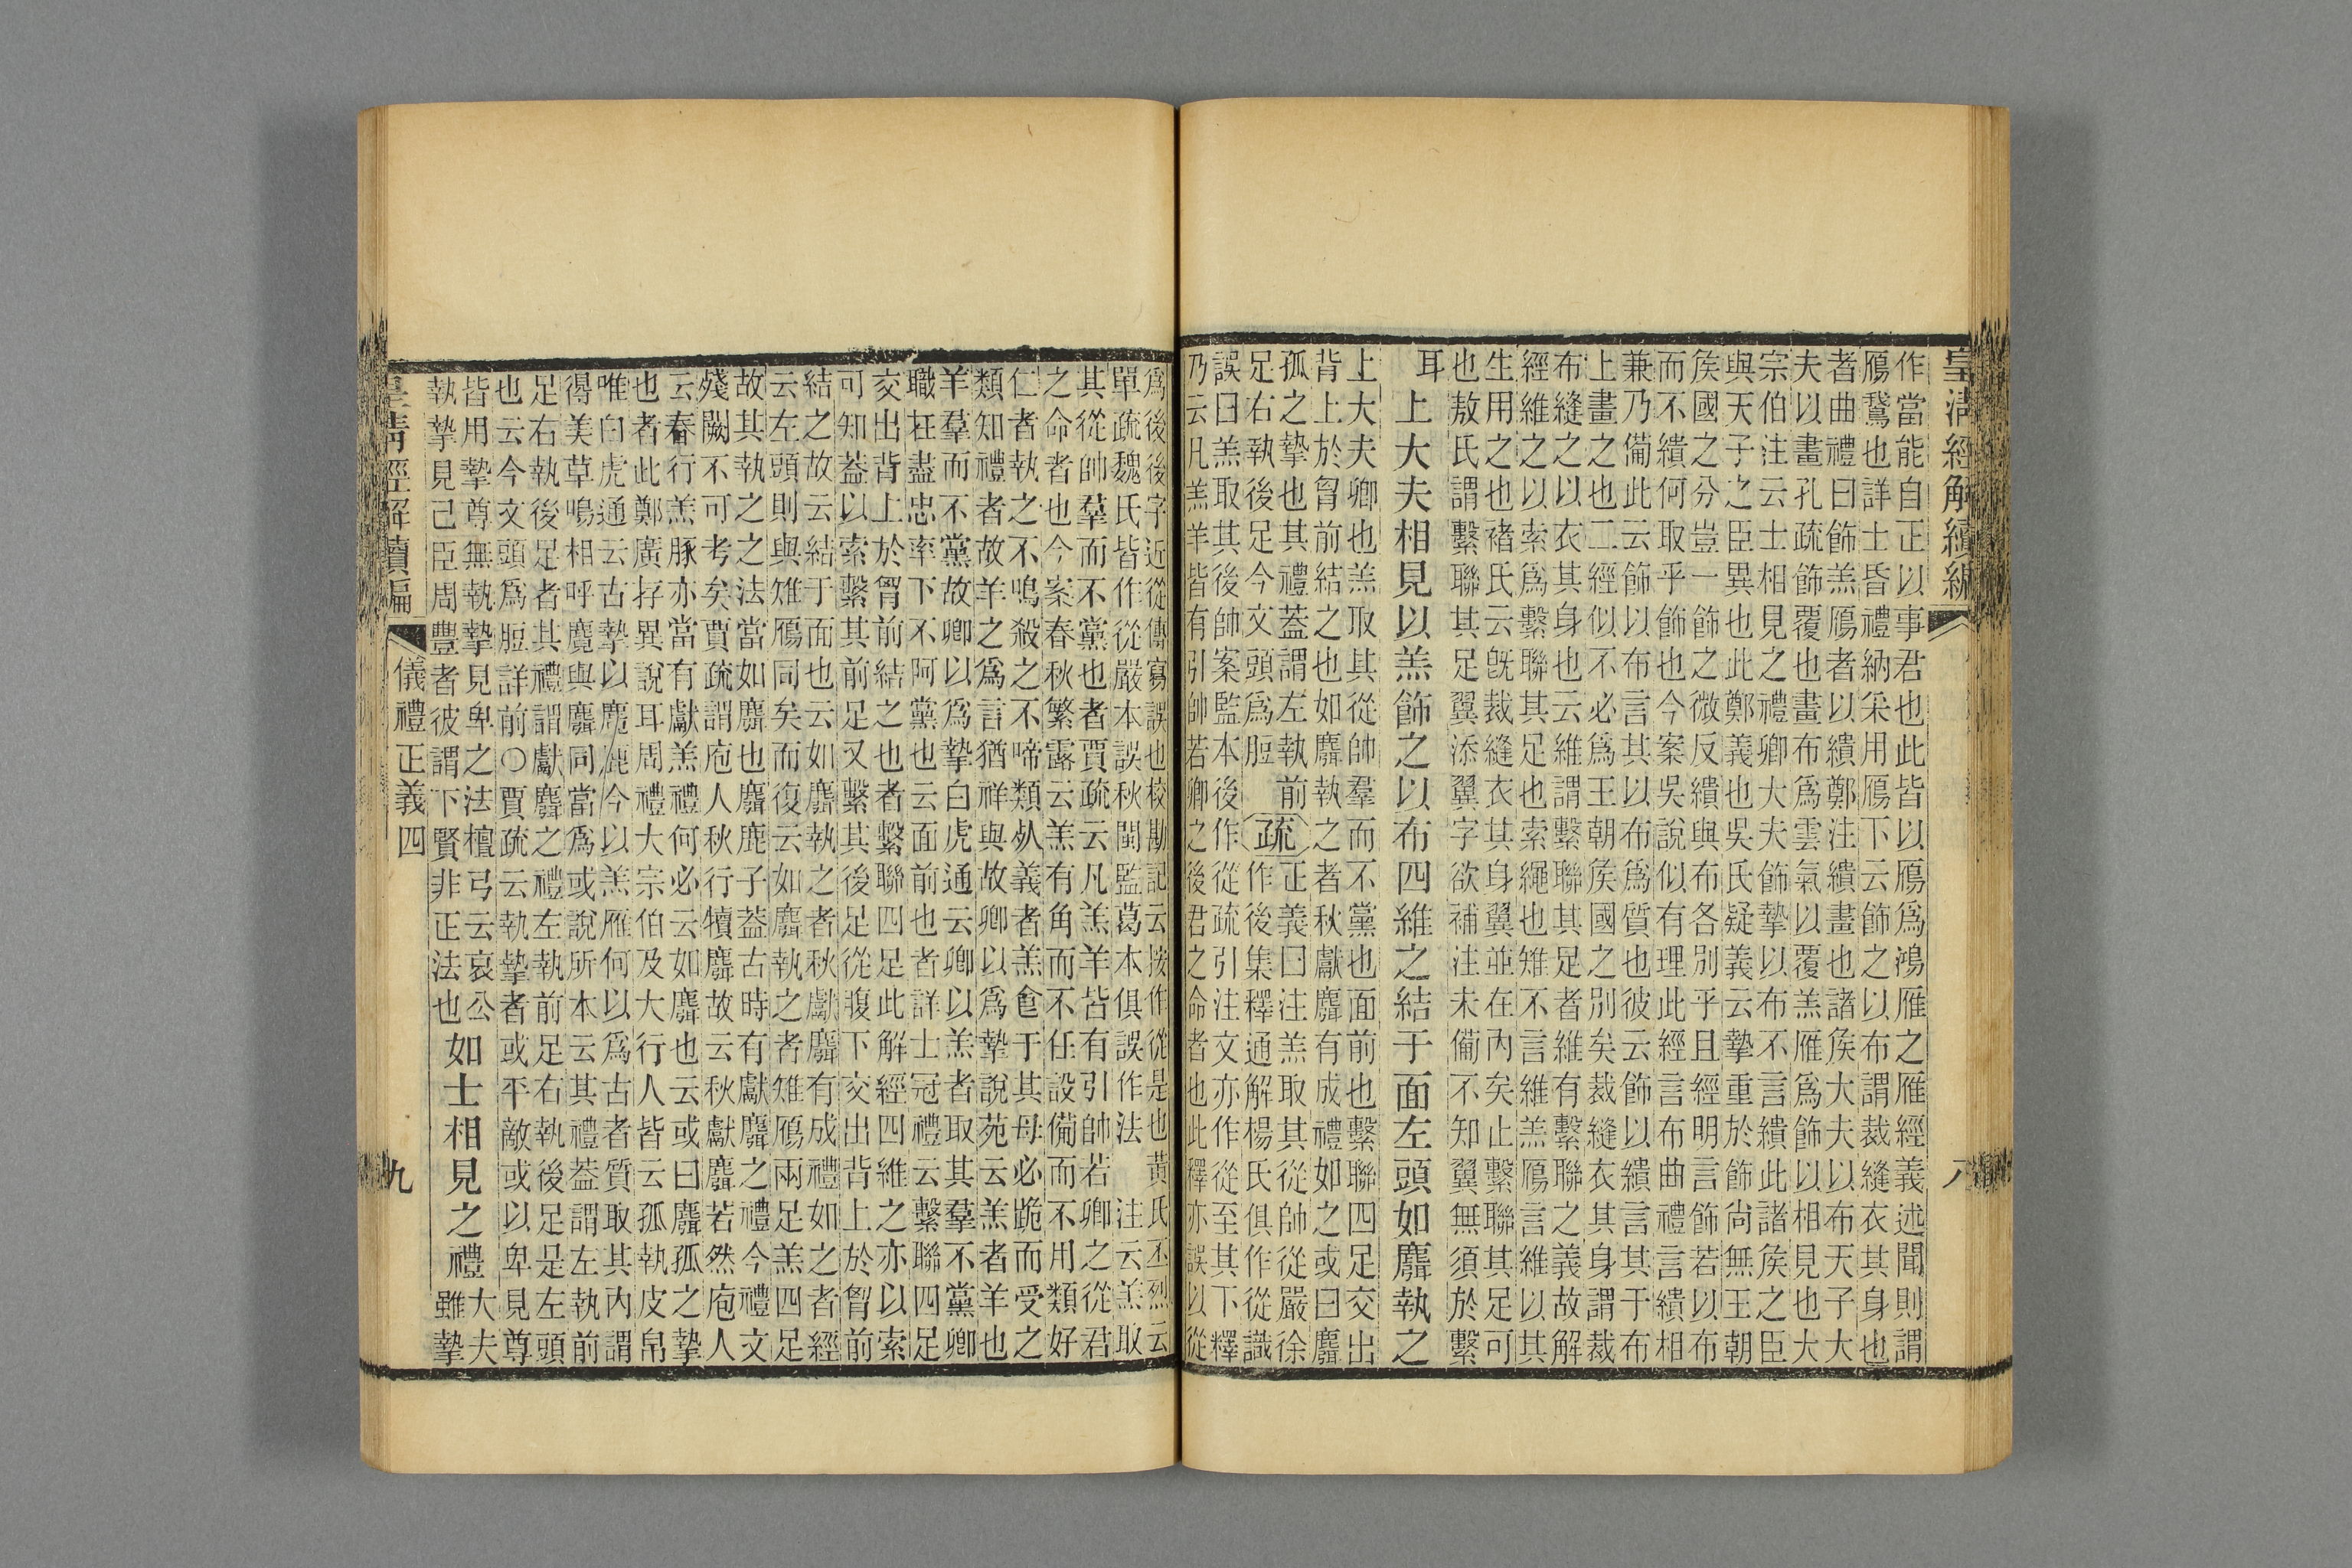 皇清經解續編　八
作當能自正以事君也此皆以鴈爲鴻雁之雁經義述聞則謂
鴈鵞也詳士昏禮納采用鴈下云飾之以布謂裁縫衣其身也
者曲禮曰飾羔鴈者以繢鄭注繢畫也諸矦大夫以布天子大
夫以畫孔疏飾覆也畫布爲雲氣以覆羔雁爲飾以相見也大
宗伯注云士相見之禮卿大夫飾摯以布不言繢此諸矦之臣
與天子之臣異也此鄭義也吳氏疑義云摯重於飾尙無王朝
矦國之分豈一飾之微反繢與布各別乎且經明言飾若以布
而不繢何取乎飾也今案吳說似有理此經言布曲禮言繢相
兼乃備此云飾以布言其以布爲質也彼云飾以繢言其于布
上畫之也二經似不必爲王朝矦國之別矣裁縫衣其身謂裁
布縫之以衣其身也云維謂繫聯其足者維有繫聯之義故解
經維之以索爲繫聯其足也索繩也雉不言維羔鴈言維以其
生用之也褚氏云旣裁縫衣其身翼並在內矣止繫聯其足可
也敖氏謂繫聯其足翼添翼字欲補注未備不知翼無須於繫
耳
上大夫相見以羔飾之以布四維之結于面左頭如麛執之
上大夫卿也羔取其從帥羣而不黨也面前也繫聯四足交出
背上於胷前結之也如麛執之者秋獻麛有成禮如之或曰麛
孤之摯也其禮蓋謂左執前
足右執後足今文頭爲脰
疏
正義曰注羔取其從帥從嚴徐
作後集釋通解楊氏俱作從識
誤曰羔取其後帥案監本後作從疏引注文亦作從至其下釋
乃云凡羔羊皆有引帥若卿之後君之命者也此釋亦誤以從
爲後後字近從傳寫誤也校勘記云按作從是也黃氏丕烈云
單疏魏氏皆作從嚴本誤秋閩監葛本俱誤作法　注云羔取
其從帥羣而不黨也者賈疏云凡羔羊皆有引帥若卿之從君
之命者也今案春秋繁露云羔有角而不任設備而不用類好
仁者執之不鳴殺之不啼類死義者羔食于其母必跪而受之
類知禮者故羊之爲言猶祥與故卿以爲摯說苑云羔者羊也
羊羣而不黨故卿以爲摯白虎通云卿以羔者取其羣不黨卿
職在盡忠率下不阿黨也云面前也者詳士冠禮云繫聯四足
交出背上於胷前結之也者繫聯四足此解經四維之亦以索
可知葢以索繫其前足又繫其後足從腹下交出背上於胷前
結之故云結于面也云如麛執之者秋獻麛有成禮如之者經
云左頭則與雉鴈同矣而復云如麛執之者雉鴈兩足羔四足
故其執之之法當如麛也麛鹿子葢古時有獻麛之禮今禮文
殘闕不可考矣賈疏謂庖人秋行犢麛故云秋獻麛若然庖人
云春行羔豚亦當有獻羔禮何必云如麛也云或曰麛孤之摯
也者此鄭廣存異說耳周禮大宗伯及大行人皆云孤執皮帛
唯白虎通云古摯以麑鹿今以羔雁何以爲古者質取其內謂
得美草鳴相呼麑與麛同當爲或說所本云其禮葢謂左執前
足右執後足者其禮謂獻麛之禮左執前足右執後足是左頭
也云今文頭爲脰詳前〇賈疏云執摯者或平敵或以卑見尊
皆用摯尊無執摯見卑之法檀弓云哀公
執摯見己臣周豐者彼謂下賢非正法也
如士相見之禮
大夫
雖摯
皇清經解續編　儀禮正義四　九